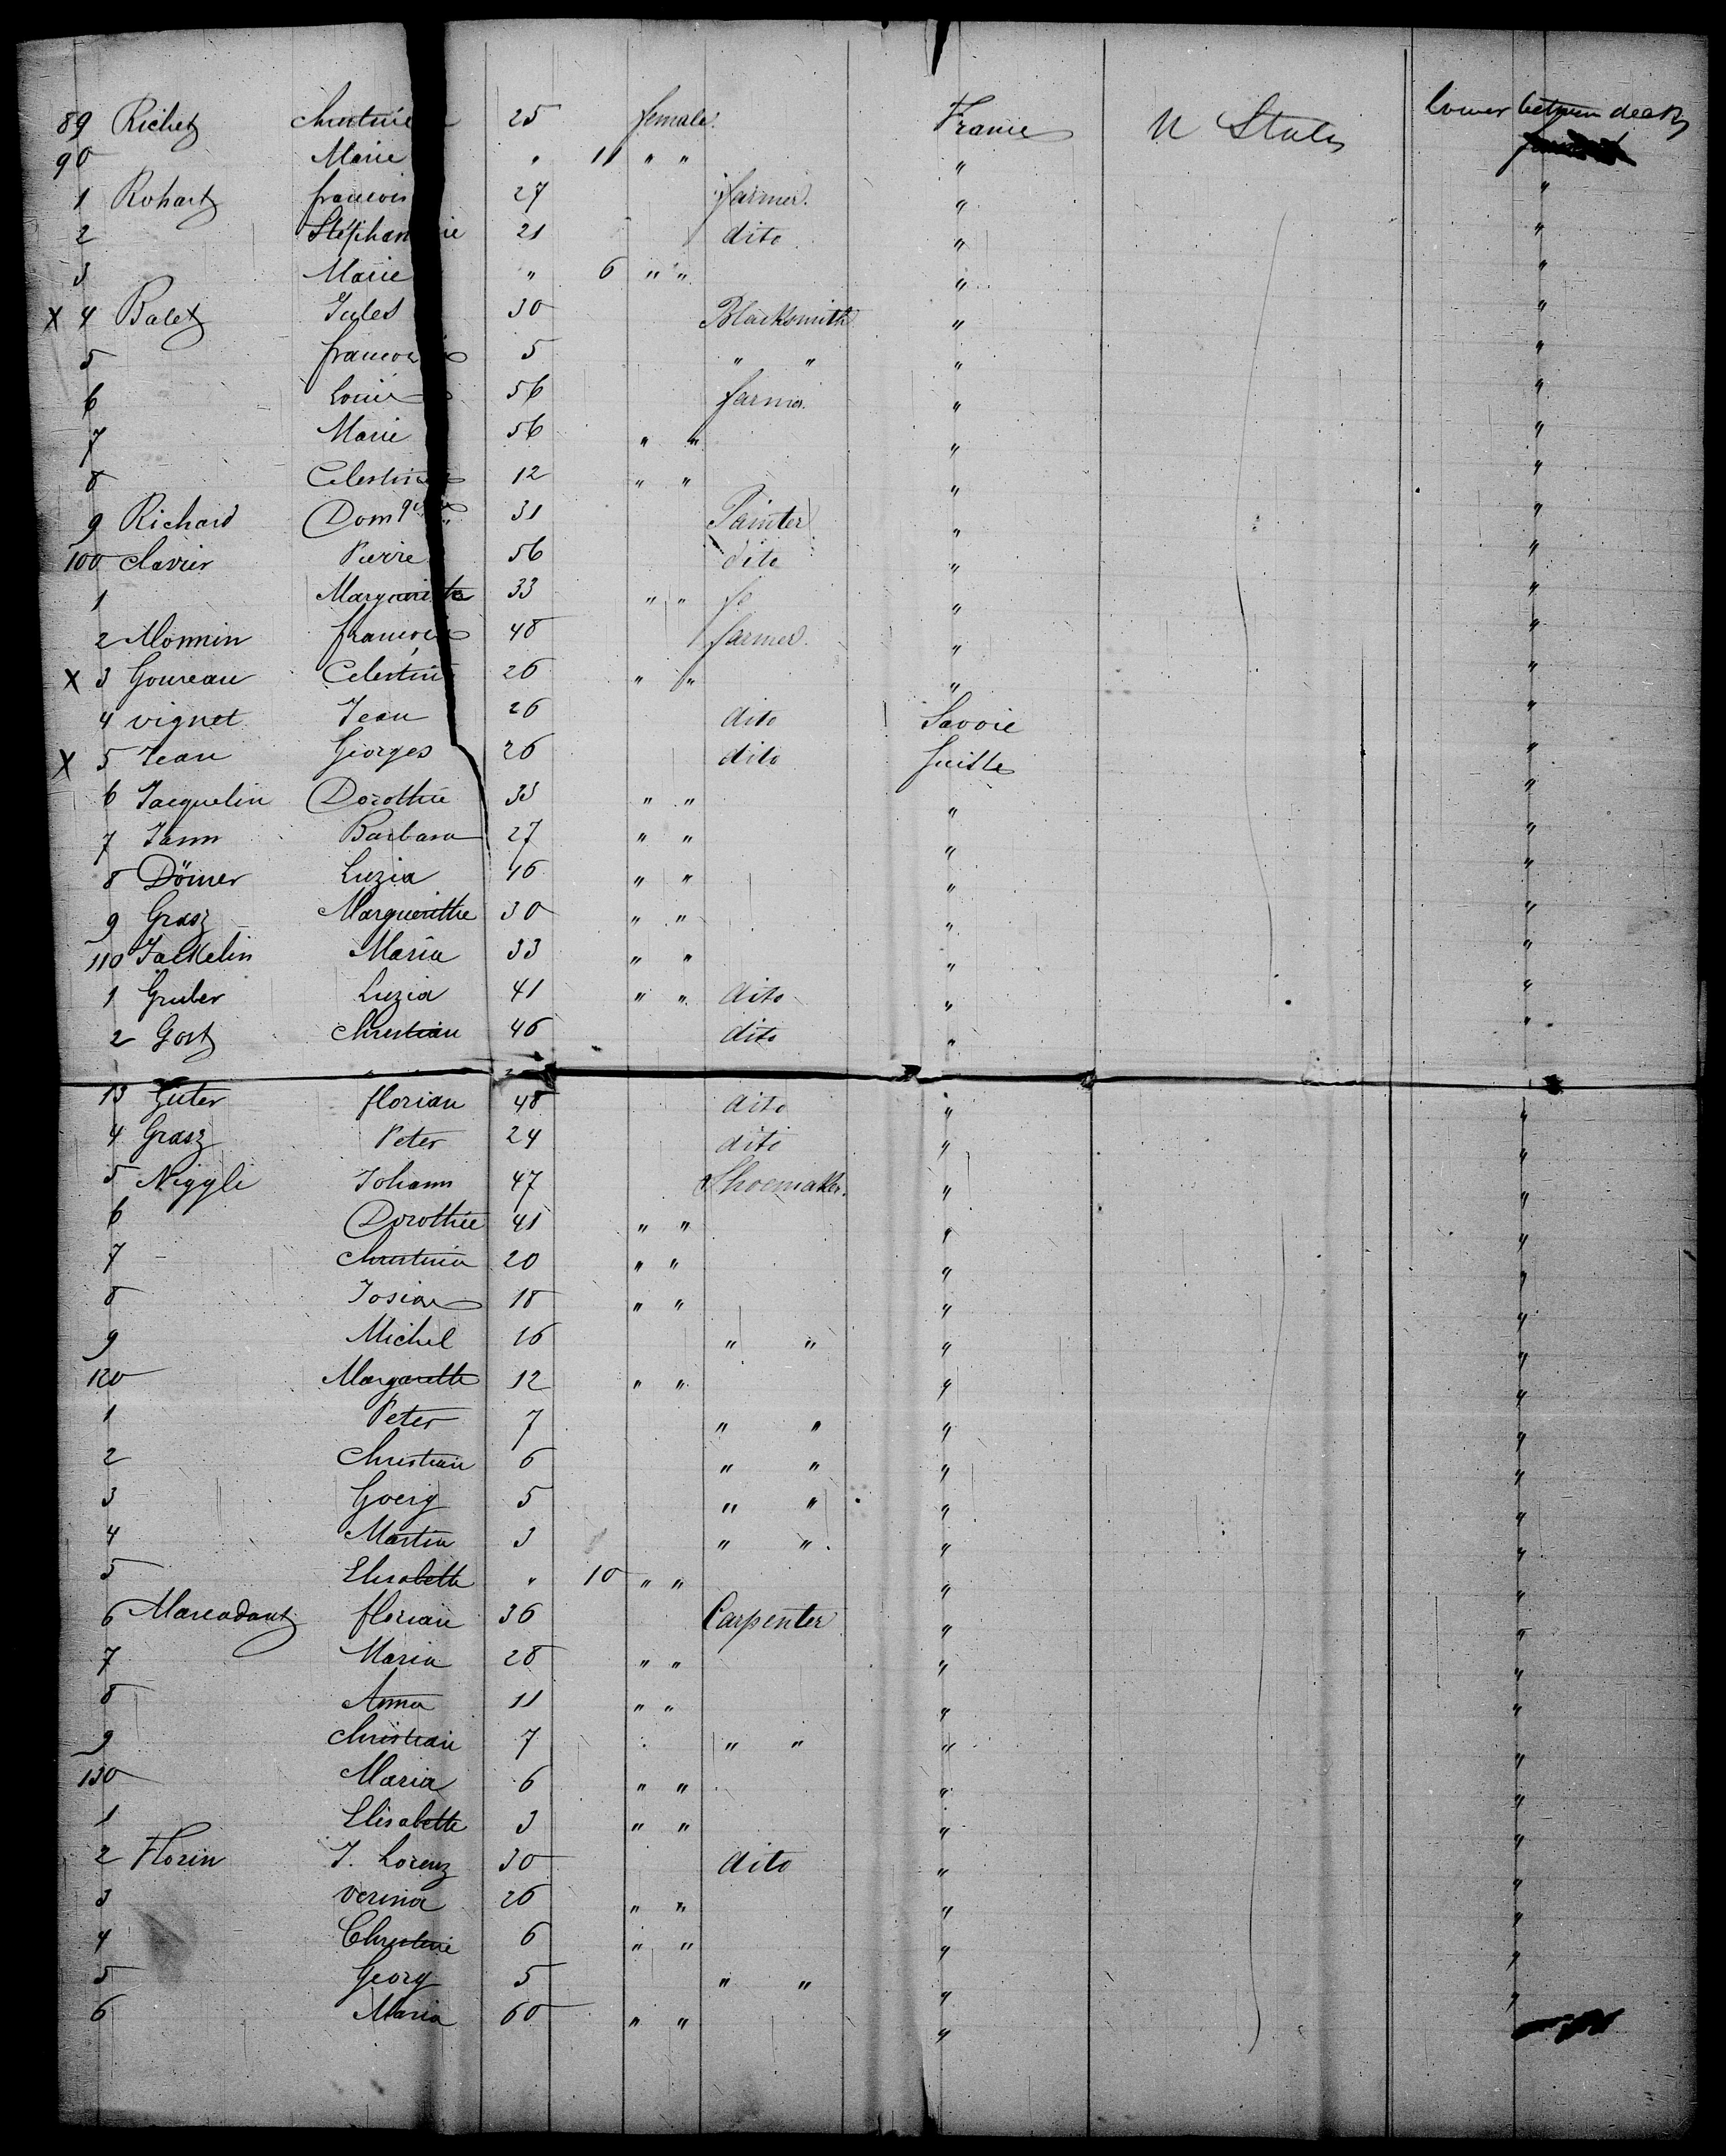 89 Richez Christine 25 female. France U States lower between decks
90 Marie " 11 " " "
1 Rohart francois 27 farmer. " "
2 Stéphanie 21 dito " "
3 Marie " 6 " " " "
X 4 Balez Jules 30 Blacksmith " "
5 francois 5 " " " "
6 Louis 56 farmer. " "
7 Marie 56 " " " "
8 Celestine 12 " " " "
9 Richard Dom 31 Painter " "
100 Clavier Pierre 56 dito " "
1 Marguerite 33 " " " "
2 Monnin francois 48 farmer. " "
X 3 Goureau Celestin 26 " " " "
4 vignet Jean 26 dito Savoie "
X 5 Jean Georges 26 dito "
6 Jacquelin Dorothie 33 " " " "
7 Jann Barbara 27 " " " "
8 Dömer Luzia 46 " " " "
9 Grasz Marguerithe 30 " " " "
110 Jackelin Maria 33 " " " "
1 Gruber Luzia 41 " " dito " "
2 Gost Christian 46 dito " "
13 Guter florian 48 dito " "
4 Grasz Peter 24 dito " "
5 Niggli Johann 47 Shoemaker. " "
6 Dorothie 41 " " " "
7 Christina 20 " " " "
8 18 " " " "
9 Michel 16 " " " "
120 Margarette 12 " " " "
1 Peter 7 " " " "
2 Christian 6 " " " "
3 Goerg 5 " " " "
4 Martin 3 " " " "
5 Elisabette " 10 " " " "
6 Marcadant florian 36 Carpenter " "
7 Maria 28 " " " "
8 Anna 11 " " " "
9 Christian 7 " " " "
130 Maria 6 " " " "
1 Elisabette 3 " " " "
2 Florin J. Lorenz 30 dito " "
3 verina 26 " " " "
4 Christine 6 " " " "
5 Georg 5 " " " "
6 Maria 60 " " "